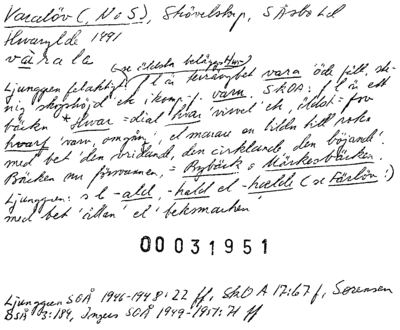 Varalöv (, N o S), Skövelstrp, S Åsbo hd
Hvarylde 1491
varala
(se äldsta belägg Hvar)
Ljunggren felaktigt f l å terrängbet vara 'öde fält, ste-
nig skogshöjd' ek komp. f. varn. SkOA: f l å ett
bäckn *Hwar = dial hvar 'virvel' ek, äldst = fov
hvarf 'varv, omgång' el maran en bildn till roten
med bet 'den vridande, den cirklande, den böjande'.
Bäcken nu försvunnen, = Rybäck o Märkesbäcken.
Ljunggren: s l -ald, -hald el -hælde (se Färlöv!)
med bet 'ättan' el 'beksmarken'
00031951
Ljunggren SOÅ 1946-1948: 22 ff, SkO A 17:67 f, Sørensen
BSÅ 3:184, Ingers SOÅ 1949-1957: 71 ff